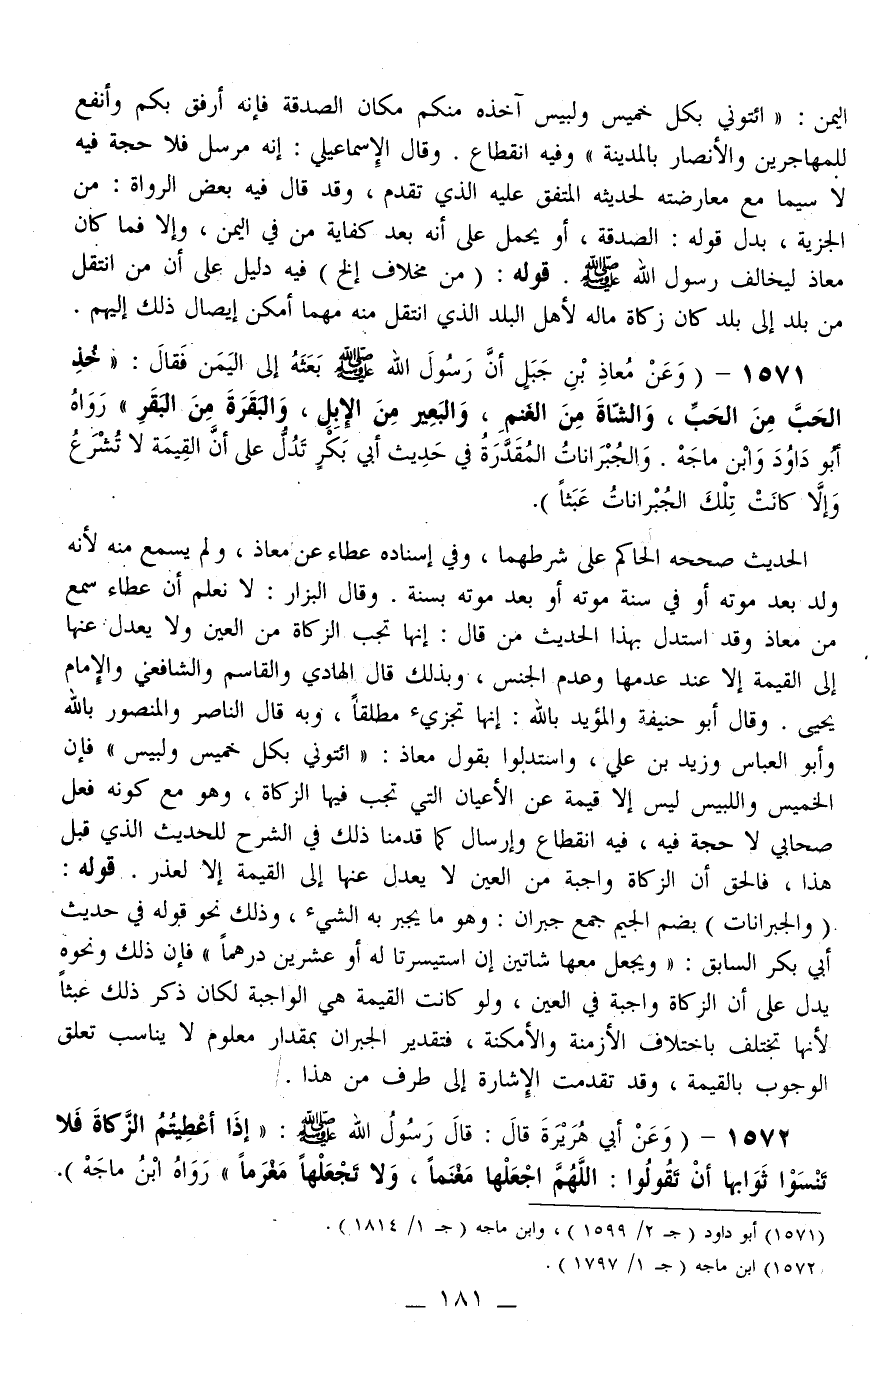 اليمن : « ائتوني بكل خميس ولبيس آخذه منكم مكان الصدقة فإنه أرفق بكم وأنفع
للمهاجرين والأنصار بالمدينة » وفيه انقطاع . وقال الإسماعيلي : إنه مرسل فلا حجة فيه
لا سيما مع معارضته لحديثه المتفق عليه الذي تقدم ، وقد قال فيه بعض الرواة : من
الجزية ، بدل قوله : الصدقة ، أو يحمل على أنه بعد كفاية من في اليمن ، وإلا فما كان
معاذ ليخالف رسول الله ﷺ . قوله : ( من مخلاف إلخ ) فيه دليل على أن من انتقل
من بلد إلى بلد كان زكاة ماله لأهل البلد الذي انتقل منه مهما أمكن إيصال ذلك إليهم .
١٥٧١ – ( وَعَنْ مُعاذِ بْنِ جَبَلٍ أنَّ رَسُولَ الله ﷺ بَعَثَهُ إلى اليَمَن فَقالَ : « خُذِ
الحَبَّ مِنَ الحَبِّ ، وَالشّاةَ مِنَ الغَنمِ ، وَالبَعِير مِنَ الإِبِلِ ، وَالبَقَرَةَ مِنَ البَقَرِ » رَوَاهُ
أبُو دَاوُدَ وَابْن ماجَهْ . وَالجُبْرَاناتُ المُقَدَّرَةُ في حَدِيث أبي بَكْرٍ تَدُلُّ على أنَّ القِيمَة لا تُشْرَعُ
وَإلَّا كانَتْ تِلْكَ الجُبْراناتُ عَبَثاً ).
الحديث صححه الحاكم على شرطهما ، وفي إسناده عطاء عن معاذ ، ولم يسمع منه لأنه
ولد بعد موته أو في سنة موته أو بعد موته بسنة . وقال البزار : لا نعلم أن عطاء سمع
من معاذ وقد استدل بهذا الحديث من قال : إنها تجب الزكاة من العين ولا يعدل عنها
إلى القيمة إلا عند عدمها وعدم الجنس ، وبذلك قال الهادي والقاسم والشافعي والإمام
يحيى . وقال أبو حنيفة والمؤيد بالله : إنها تجزيء مطلقاً ، وبه قال الناصر والمنصور بالله
وأبو العباس وزيد بن علي ، واستدلوا بقول معاذ : « ائتوني بكل خميس ولبيس » فإن
الخميس واللبيس ليس إلا قيمة عن الأعيان التي تجب فيها الزكاة ، وهو مع كونه فعل
صحابي لا حجة فيه ، فيه انقطاع وإرسال كما قدمنا ذلك في الشرح للحديث الذي قبل
هذا ، فالحق أن الزكاة واجبة من العين لا يعدل عنها إلى القيمة إلا لعذر . قوله :
( والجبرانات ) بضم الجيم جمع جبران : وهو ما يجبر به الشيء ، وذلك نحو قوله في حديث
أبي بكر السابق : « ويجعل معها شاتين إن استيسرتا له أو عشرين درهماً » فإن ذلك ونحوه
يدل على أن الزكاة واجبة في العين ، ولو كانت القيمة هي الواجبة لكان ذكر ذلك عبثاً
لأنها تختلف باختلاف الأزمنة والأمكنة ، فتقدير الجبران بمقدار معلوم لا يناسب تعلق
الوجوب بالقيمة ، وقد تقدمت الإشارة إلى طرف من هذا .
١٥٧٢ – ( وَعَنْ أبي هُرَيْرَةَ قالَ : قالَ رَسُولُ الله ﷺ : « إذَا أعْطِيتُمُ الزَّكاةَ فَلا
تَنْسَوْا ثَوَابها أنْ تَقُولُوا : اللَّهُمَّ اجْعَلْها مَغْنَماً ، وَلا تَجْعَلْهاً مَغْرَماً » رَوَاهُ ابْنُ ماجَهْ ).
(١٥٧١) أبو داود ( جـ ٢/ ١٥٩٩ ) ، وابن ماجه ( جـ ١/ ١٨١٤ ) .
١٥٧٢) ابن ماجه ( جـ ١/ ١٧٩٧ ) .
— ١٨١ —